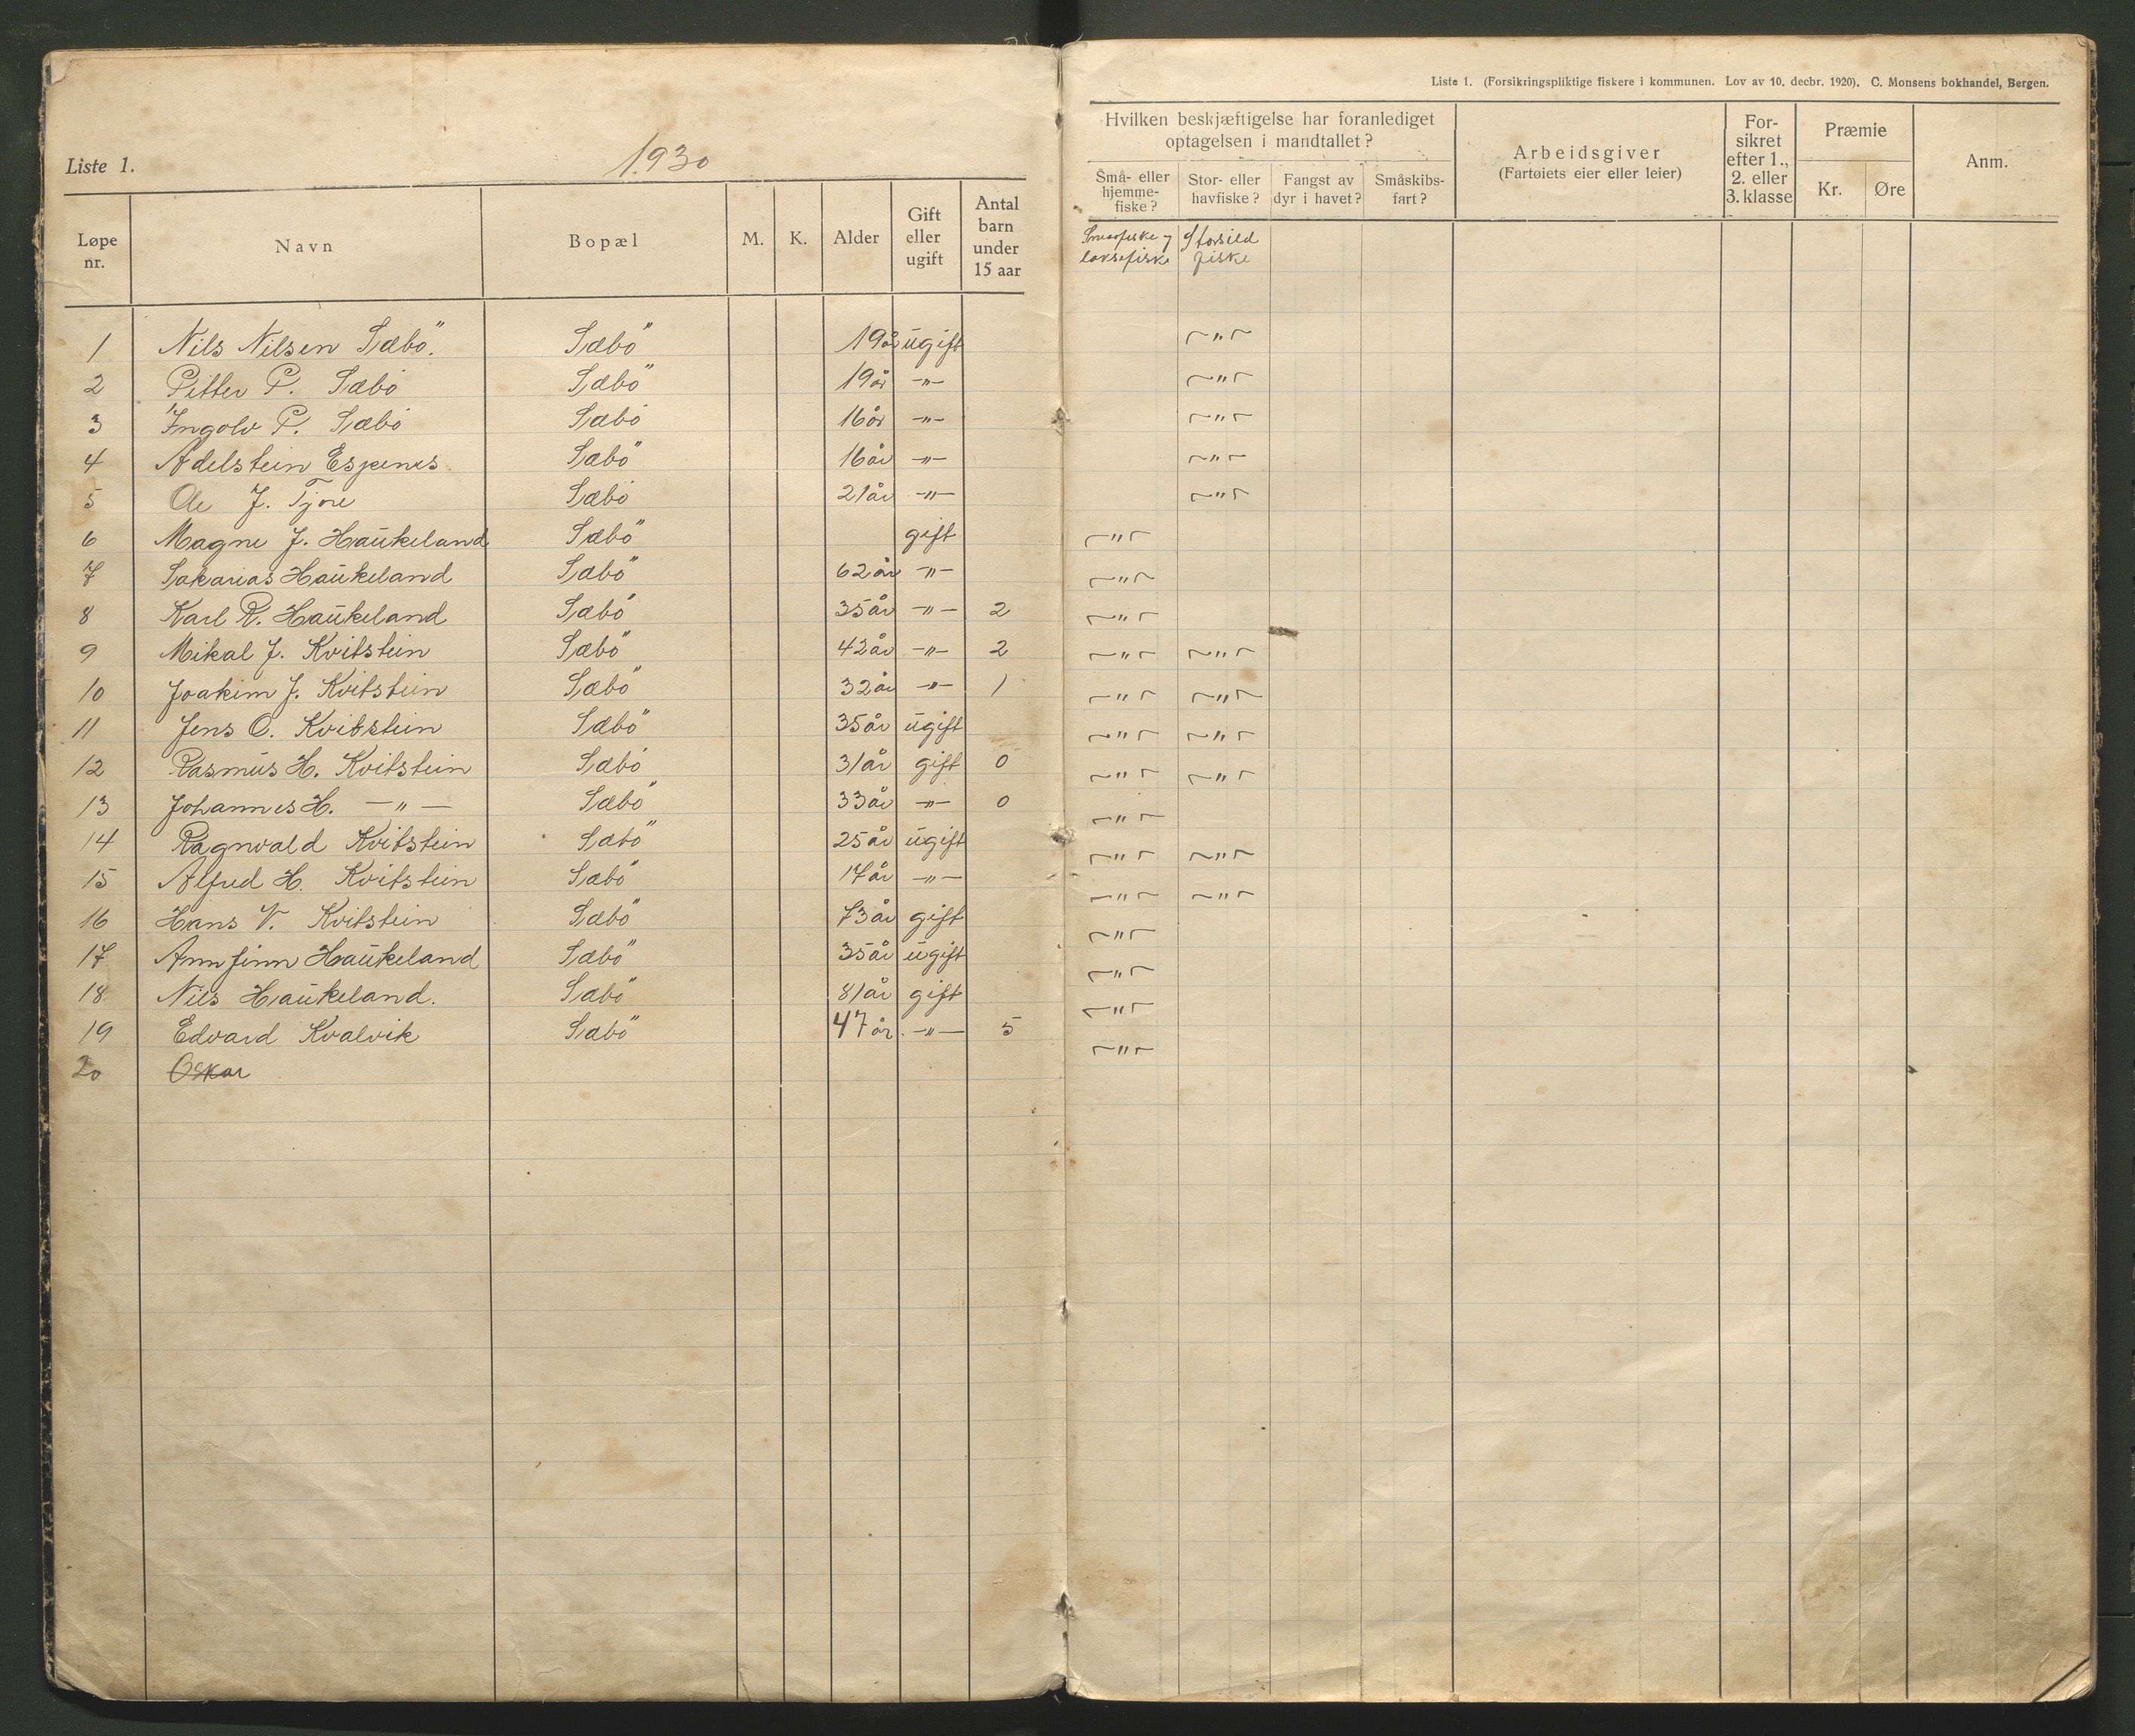 Liste 1. (Forsikringspliktige fiskere i kommunen. Lov av 10. decbr. 1920). C. Monsens bokhandel, Bergen.
Liste 1.
1930
Løpe nr. Navn Bopæl M. K. Alder Gift eller ugift Antal barn under 15 aar
Hvilken beskjæftigelse har foranlediget optagelsen i mandtallet?
Små- eller hjemme-fiske? Stor- eller havfiske? Fangst av dyr i havet? Småskibs-fart?
Arbeidsgiver (Fartøiets eier eller leier)
For-sikret efter 1., 2. eller 3. klasse
Præmie Kr. Øre
Anm.
laksefiske Storsild fiske
1 Nils Nilsen Sæbö. Sæbö 19 år ugift – " –
2 Pitter P. Sæbö Sæbö 19 år – " – – " –
3 Ingolv P. Sæbö Sæbö 16 år – " – – " –
4 Adelstein Espenes Sæbö 16 år – " – – " –
5 Ole J. Tjore Sæbö 21 år – " – – " –
6 Magne J. Haukeland Sæbö gift – " –
7 Sakarias Haukeland Sæbö 62 år – " – – " –
8 Karl R. Haukeland Sæbö 35 år – " – 2 – " –
9 Mikal J. Kvitstein Sæbö 42 år – " – 2 – " – – " –
10 Joakim J. Kvitstein Sæbö 32 år – " – 1 – " – – " –
11 Jens O. Kvitstein Sæbö 35 år ugift – " – – " –
12 Rasmus H. Kvitstein Sæbö 31 år gift 0 – " – – " –
13 Johannes H. – " – Sæbö 33 år – " – 0 – " –
14 Ragnvald Kvitstein Sæbö 25 år ugift – " – – " –
15 Alfred H. Kvitstein Sæbö 17 år – " – – " – – " –
16 Hans V. Kvitstein Sæbö 73 år gift – " –
17 Annfinn Haukeland Sæbö 35 år ugift – " –
18 Nils Haukeland. Sæbö 81 år gift – " –
19 Edvard Kvalvik Sæbö 47 år. – " – 5 – " –
20 Oskar